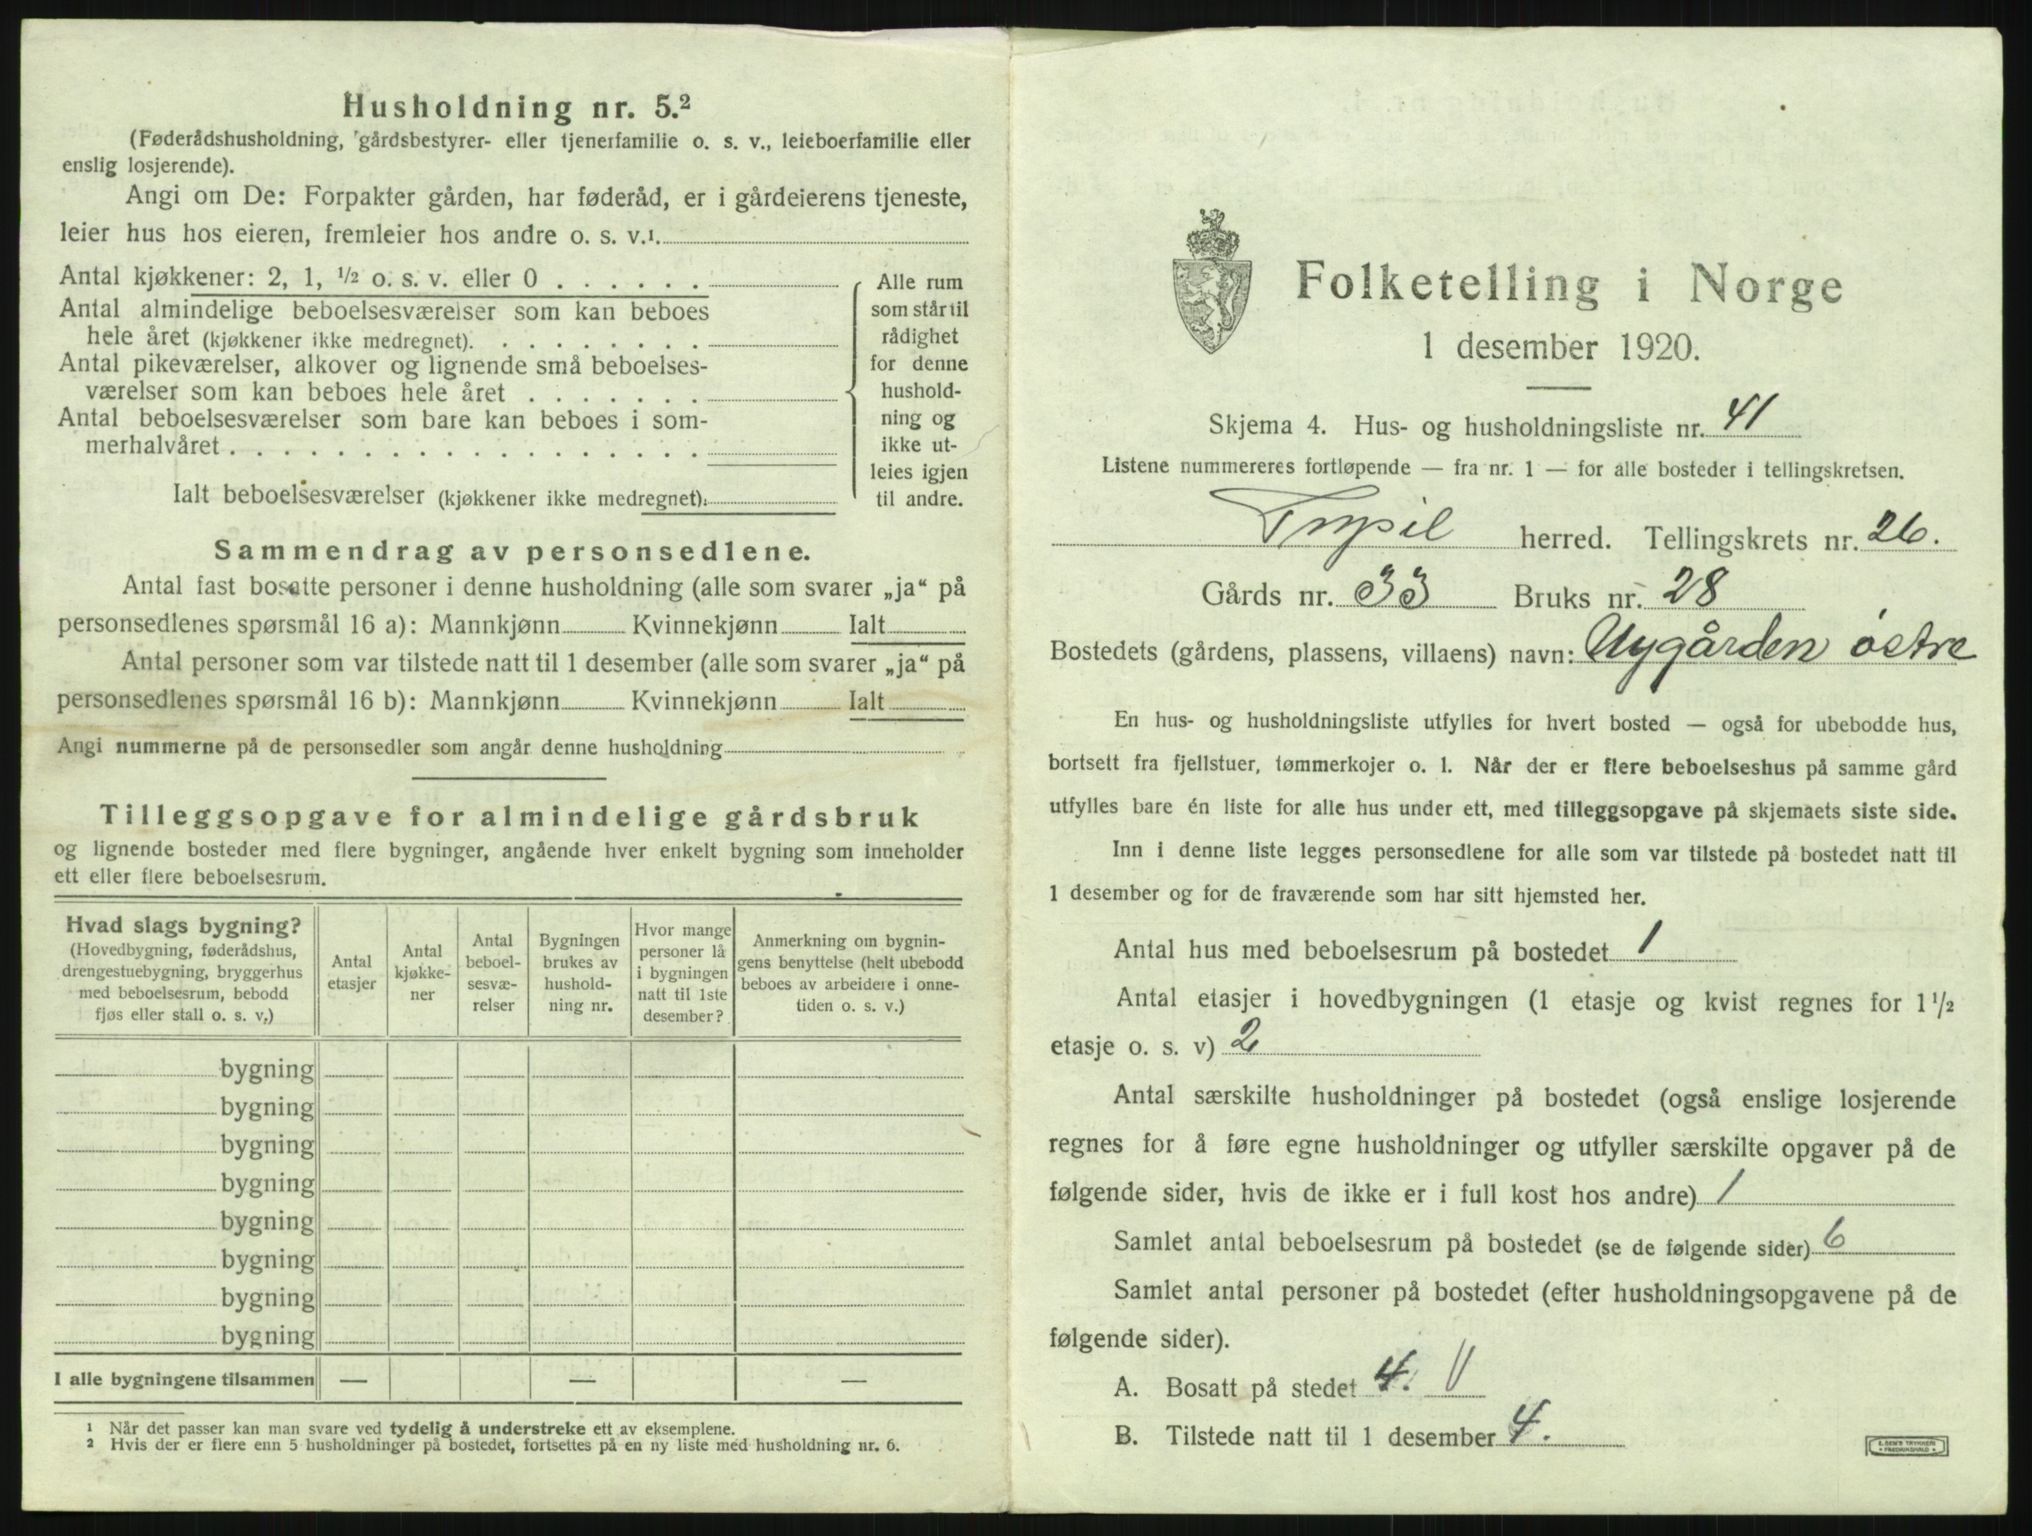 Husholdning nr. 5.²
(Føderådshusholdning, gårdsbestyrer- eller tjenerfamilie o. s. v., leieboerfamilie eller
enslig losjerende).
Angi om De: Forpakter gården, har føderåd, er i gårdeierens tjeneste,
leier hus hos eieren, fremleier hos andre o. s. v.¹.
Antal kjøkkener: 2, 1, ½ o. s. v. eller 0 . . . . . .
Antal almindelige beboelsesværelser som kan beboes
hele året (kjøkkener ikke medregnet). . . . . . . . .
Antal pikeværelser, alkover og lignende små beboelses-
værelser som kan beboes hele året . . . . . . .
Antal beboelsesværelser som bare kan beboes i som-
merhalvåret . . . . . . . . . . . . . . . . . .
Ialt beboelsesværelser (kjøkkener ikke medregnet).
Alle rum
som står til
rådighet
for denne
hushold-
ning og
ikke ut-
leies igjen
til andre.
Sammendrag av personsedlene.
Antal fast bosatte personer i denne husholdning (alle som svarer „ja“ på
personsedlenes spørsmål 16 a): Mannkjønn Kvinnekjønn Ialt
Antal personer som var tilstede natt til 1 desember (alle som svarer „ja“ på
personsedlenes spørsmål 16 b): Mannkjønn Kvinnekjønn Ialt
Angi nummerne på de personsedler som angår denne husholdning
Tilleggsopgave for almindelige gårdsbruk
og lignende bosteder med flere bygninger, angående hver enkelt bygning som inneholder
ett eller flere beboelsesrum.
Hvad slags bygning?
(Hovedbygning, føderådshus,
drengestuebygning, bryggerhus
med beboelsesrum, bebodd
fjøs eller stall o. s. v.)
Antal
etasjer
Antal
kjøkke-
ner
Antal
beboel-
sesvæ-
relser
Bygningen
brukes av
hushold-
ning nr.
Hvor mange
personer lå
i bygningen
natt til 1ste
desember?
Anmerkning om bygnin-
gens benyttelse (helt ubebodd
beboes av arbeidere i onne-
tiden o. s. v.)
bygning
bygning
bygning
bygning
bygning
bygning
bygning
bygning
I alle bygningene tilsammen — — —
¹ Når det passer kan man svare ved tydelig å understreke ett av eksemplene.
² Hvis der er flere enn 5 husholdninger på bostedet, fortsettes på en ny liste med husholdning nr. 6.
Folketelling i Norge
1 desember 1920.
Skjema 4. Hus- og husholdningsliste nr. 41
Listene nummereres fortløpende — fra nr. 1 — for alle bosteder i tellingskretsen.
Trysil herred. Tellingskrets nr. 26.
Gårds nr. 33 Bruks nr. 28
Bostedets (gårdens, plassens, villaens) navn: Nygården østre
En hus- og husholdningsliste utfylles for hvert bosted — også for ubebodde hus,
bortsett fra fjellstuer, tømmerkojer o. l. Når der er flere beboelseshus på samme gård
utfylles bare én liste for alle hus under ett, med tilleggsopgave på skjemaets siste side.
Inn i denne liste legges personsedlene for alle som var tilstede på bostedet natt til
1 desember og for de fraværende som har sitt hjemsted her.
Antal hus med beboelsesrum på bostedet 1
Antal etasjer i hovedbygningen (1 etasje og kvist regnes for 1½
etasje o. s. v) 2
Antal særskilte husholdninger på bostedet (også enslige losjerende
regnes for å føre egne husholdninger og utfyller særskilte opgaver på de
følgende sider, hvis de ikke er i full kost hos andre) 1
Samlet antal beboelsesrum på bostedet (se de følgende sider) 6
Samlet antal personer på bostedet (efter husholdningsopgavene på de
følgende sider).
A. Bosatt på stedet 4. V
B. Tilstede natt til 1 desember 4.